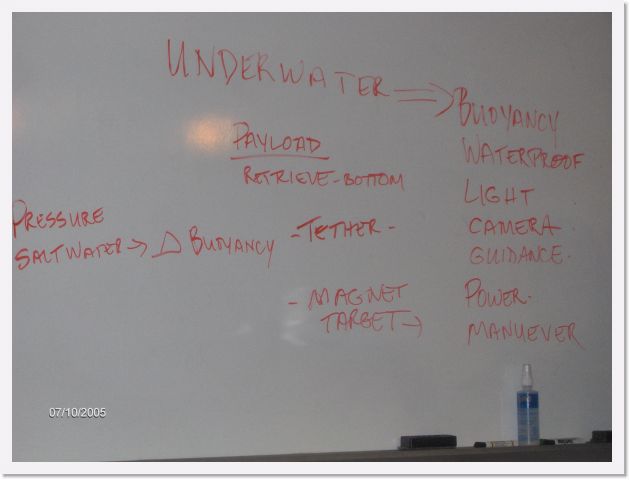 UNDERWATER ⇒
BUOYANCY
WATERPROOF
LIGHT
CAMERA.
GUIDANCE.
POWER.
MANUEVER
PAYLOAD
RETRIEVE-BOTTOM
- TETHER -
- MAGNET
TARGET →
PRESSURE
SALTWATER → △ BUOYANCY
07/10/2005